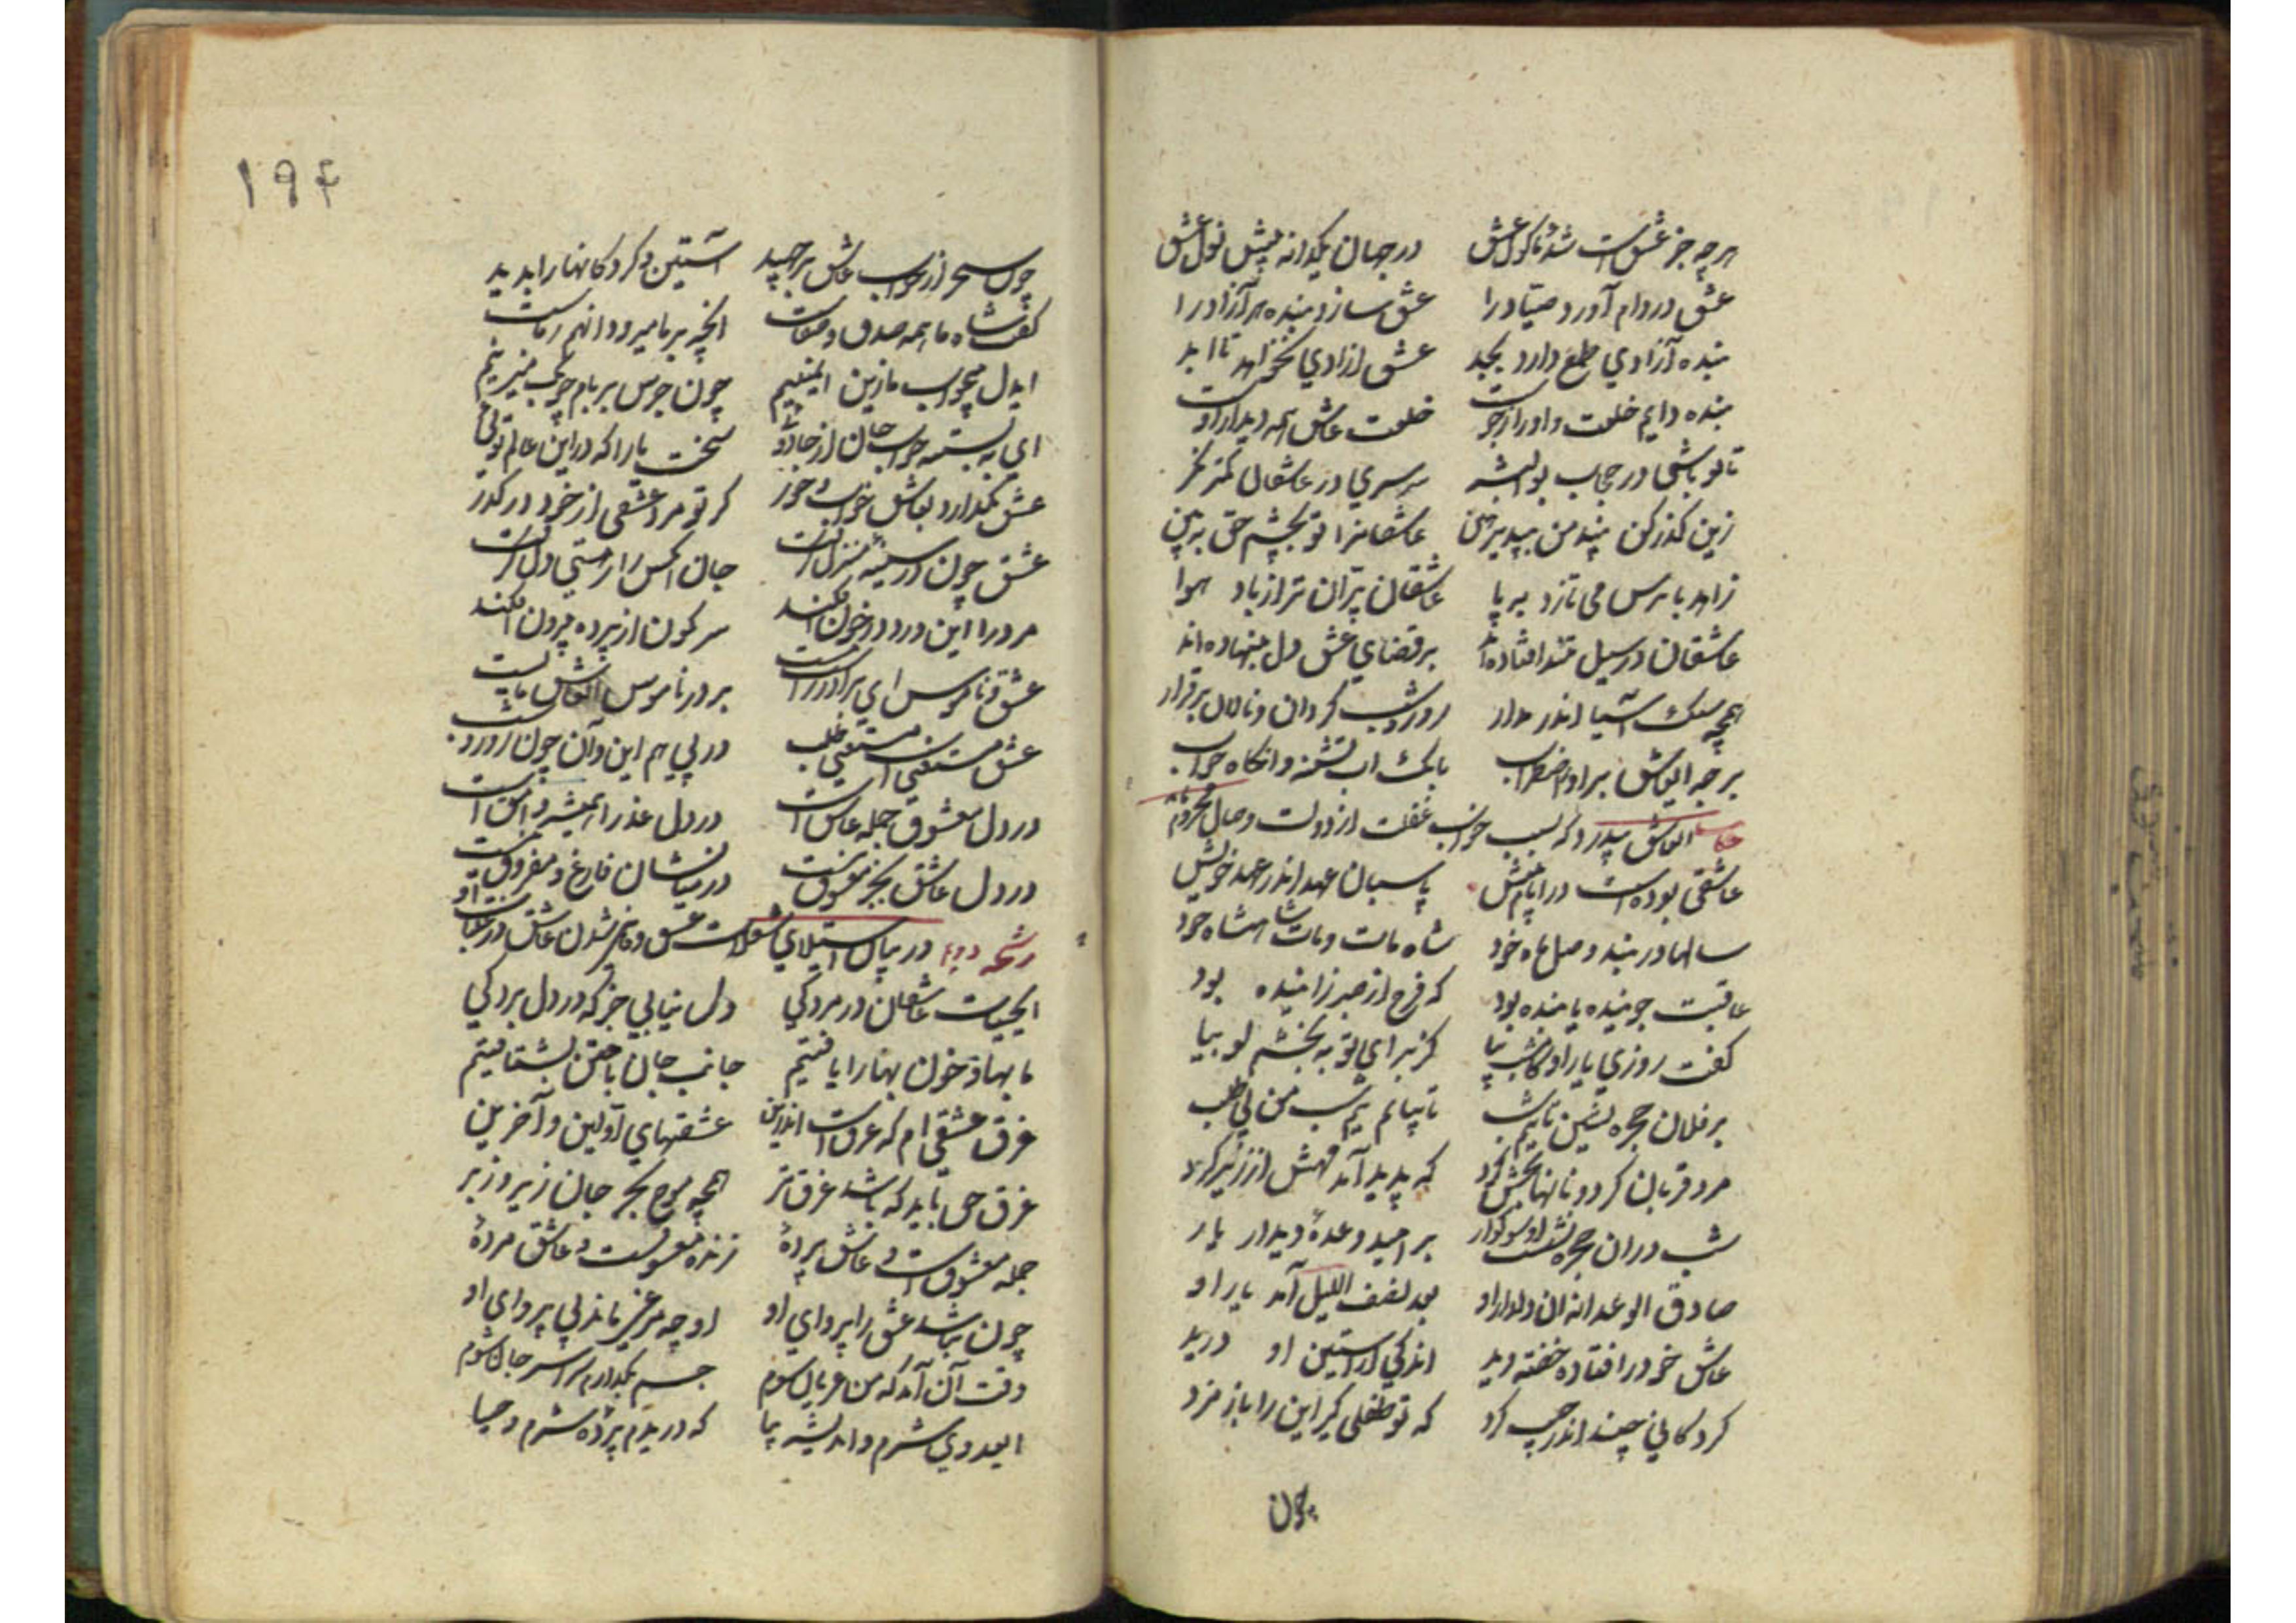 هرچه جز عشقست شد ماکول عشق در جهان یکدانه پیش نول عشق
عشق در دام آورد صیاد را عشق سازد بنده هر آزاد را
بنده آزادی طمع دارد بجد عشق ازادی نخواهد تا ابد
بنده دایم خلعت و ادرارجوست خلعت عاشق همه دیدار اوست
تا تو باشی در حجاب بوالبشر سرسری در عاشقان کمتر نگر
زین گذر کن پند من بپذیر هین عاشقانرا تو بچشم حق ببین
زاهد با ترس می تازد به پا عاشقان پران تر از باد هوا
عاشقان در سیل تند افتاده اند بر قضای عشق دل بنهاده اند
همچو سنک آسیا اندر مدار روز و شب گردان و نالان بی قرار
برجه ای عاشق براور اضطراب بانک اب تشنه و انگاه خواب
العاشق که بسبب خواب غفلت از دولت وصال محروم
عاشقی بوده است در ایام پیش پاسبان عهد اندر عهد خویش
سالها در بند وصل ماه خود شاه مات و مات شاهنشاه خود
عاقبت جوینده یابنده بود که فرج از صبر زاینده بود
گفت روزی یار او کامشب بیا کز برای تو به پختم لوبیا
در فلان حجره نشین تا نیم شب تا بیایم نیم شب من بی طلب
مرد قربان کرد و نانها بخش کرد که پدید آمد مهش از زیر گرد
شب دران حجره نشست او سوگوار بر امید وعده دیدار یار
صادق الوعدانه ان دلدار او بعد نصف اللیل آمد یار او
عاشق خود را فتاده خفته دید اندکی از آستین او درید
گردکانی چند اندر جیب کرد که تو طفلی گیر این را باز نرد
چون
۱۹۴
چون سحر از خواب عاشق برجهید آستین و گردکانها را بدید
گفت شاه ما همه صدق و صفاست انچه بر ما میرود انهم ز ماست
ایدل بیخواب ما زین ایمنیم چون جرس بر بام چوبک میزنیم
ای به بسته خواب جان از جادوی سخت یارا که در این عالم توی
عشق نگذارد بعاشق خواب و خور گر تو مرد عشقی از خود درگذر
عشق چون در سینه منزل گرفت جان انکس را ز هستی دل گرفت
مرد را این درد در خون افکند سرنگون از پرده بیرون افکند
عشق و ناموس ای برادر راست نیست بر در ناموس ای عاشق مایست
عشق مستسقی است مستسقی طلب در پی هم این و آن چون روز و شب
در دل معشوق جمله عاشق است در دل عذرا همیشه وامق است
در دل عاشق بجز معشوق نیست در میانشان فارغ و مفروق نیست
رشحه در بیان استیلای عشق و شدن عاشق
ای حیات عاشقان در مردگی دل نیابی جز که در دل بردگی
ما بها و خون بها را یافتیم جانب جان باختن بشتافتیم
غرق عشقی ام که غرق است اندرین عشقهای اولین و آخرین
غرق حق باید که باشد غرق تر همچو موج بحر جان زیر و زبر
جمله معشوق است و عاشق پرده زنده معشوقست و عاشق مرده
چون نباشد عشق را پروای او او چو مرغی ماند بی پر وای او
وقت آن آمد که من عریان شوم جسم بگذارم سراسر جان شوم
ای عدوی شرم و اندیشه بیا که دریدم پرده شرم و حیا